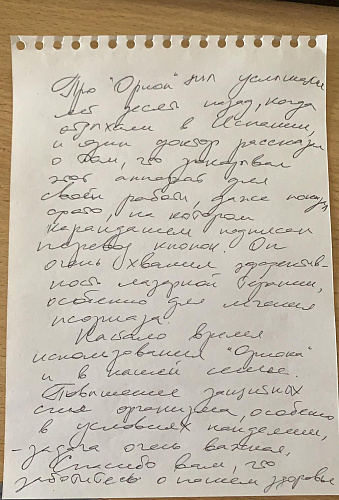 Про "Орион" мы услышали
лет десять назад, когда
отдыхали в Испании,
и один доктор рассказал
о том, что заказывал
этот аппарат для
своей работы, даже показал
фото, на котором
карандашом подписан
перевод кнопок. Он
очень хвалил эффектив-
ность лазерной терапии,
особенно для лечения
псориаза.
Настало время
использования "Ориона"
и в нашей семье.
Повышение защитных
сил организма, особенно
в условиях пандемии,
- задача очень важная,
Спасибо вам, что
заботитесь о нашем здоровье